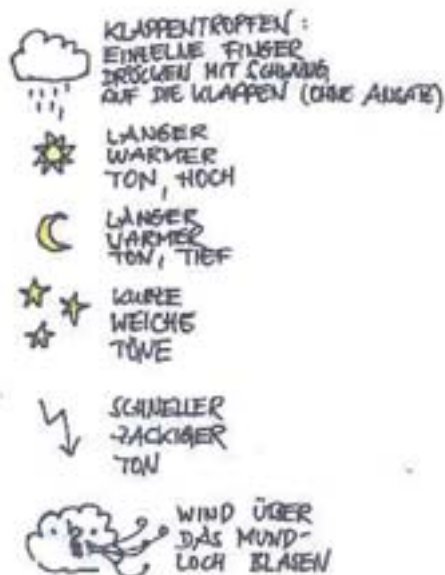 KLAPPENTROPFEN:
EINZELNE FINGER
DRÜCKEN MIT SCHWUNG
AUF DIE KLAPPEN (OHNE ANSATZ)
LANGER
WARMER
TON, HOCH
LANGER
WARMER
TON, TIEF
KURZE
WEICHE
TÖNE
SCHNELLER
ZACKIGER
TON
WIND ÜBER
DAS MUND-
LOCH BLASEN